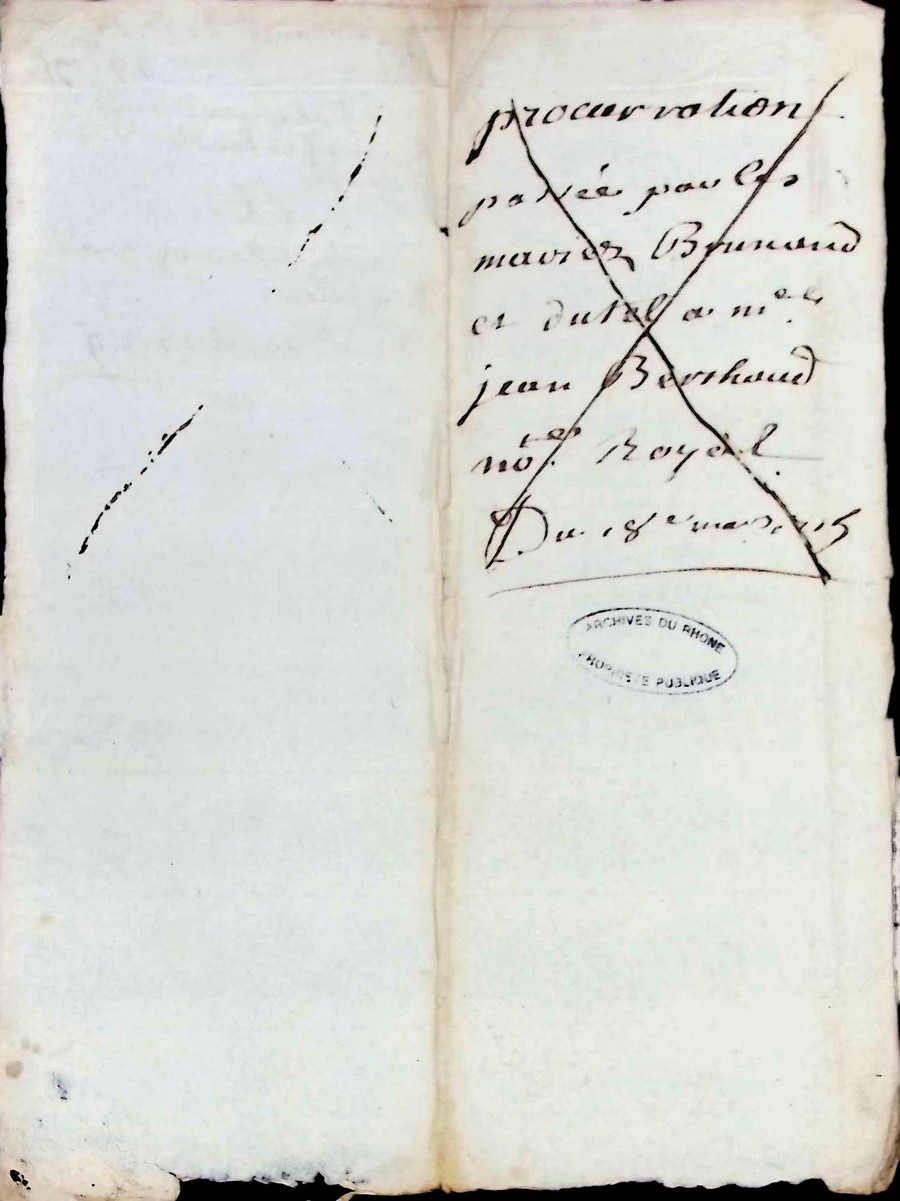 procurration
passée par les
mariéz Brunand
et dutel a me
jean Berthaud
notre Royal
Du 18e mars
ARCHIVES DU RHONE
PROPRIETE PUBLIQUE